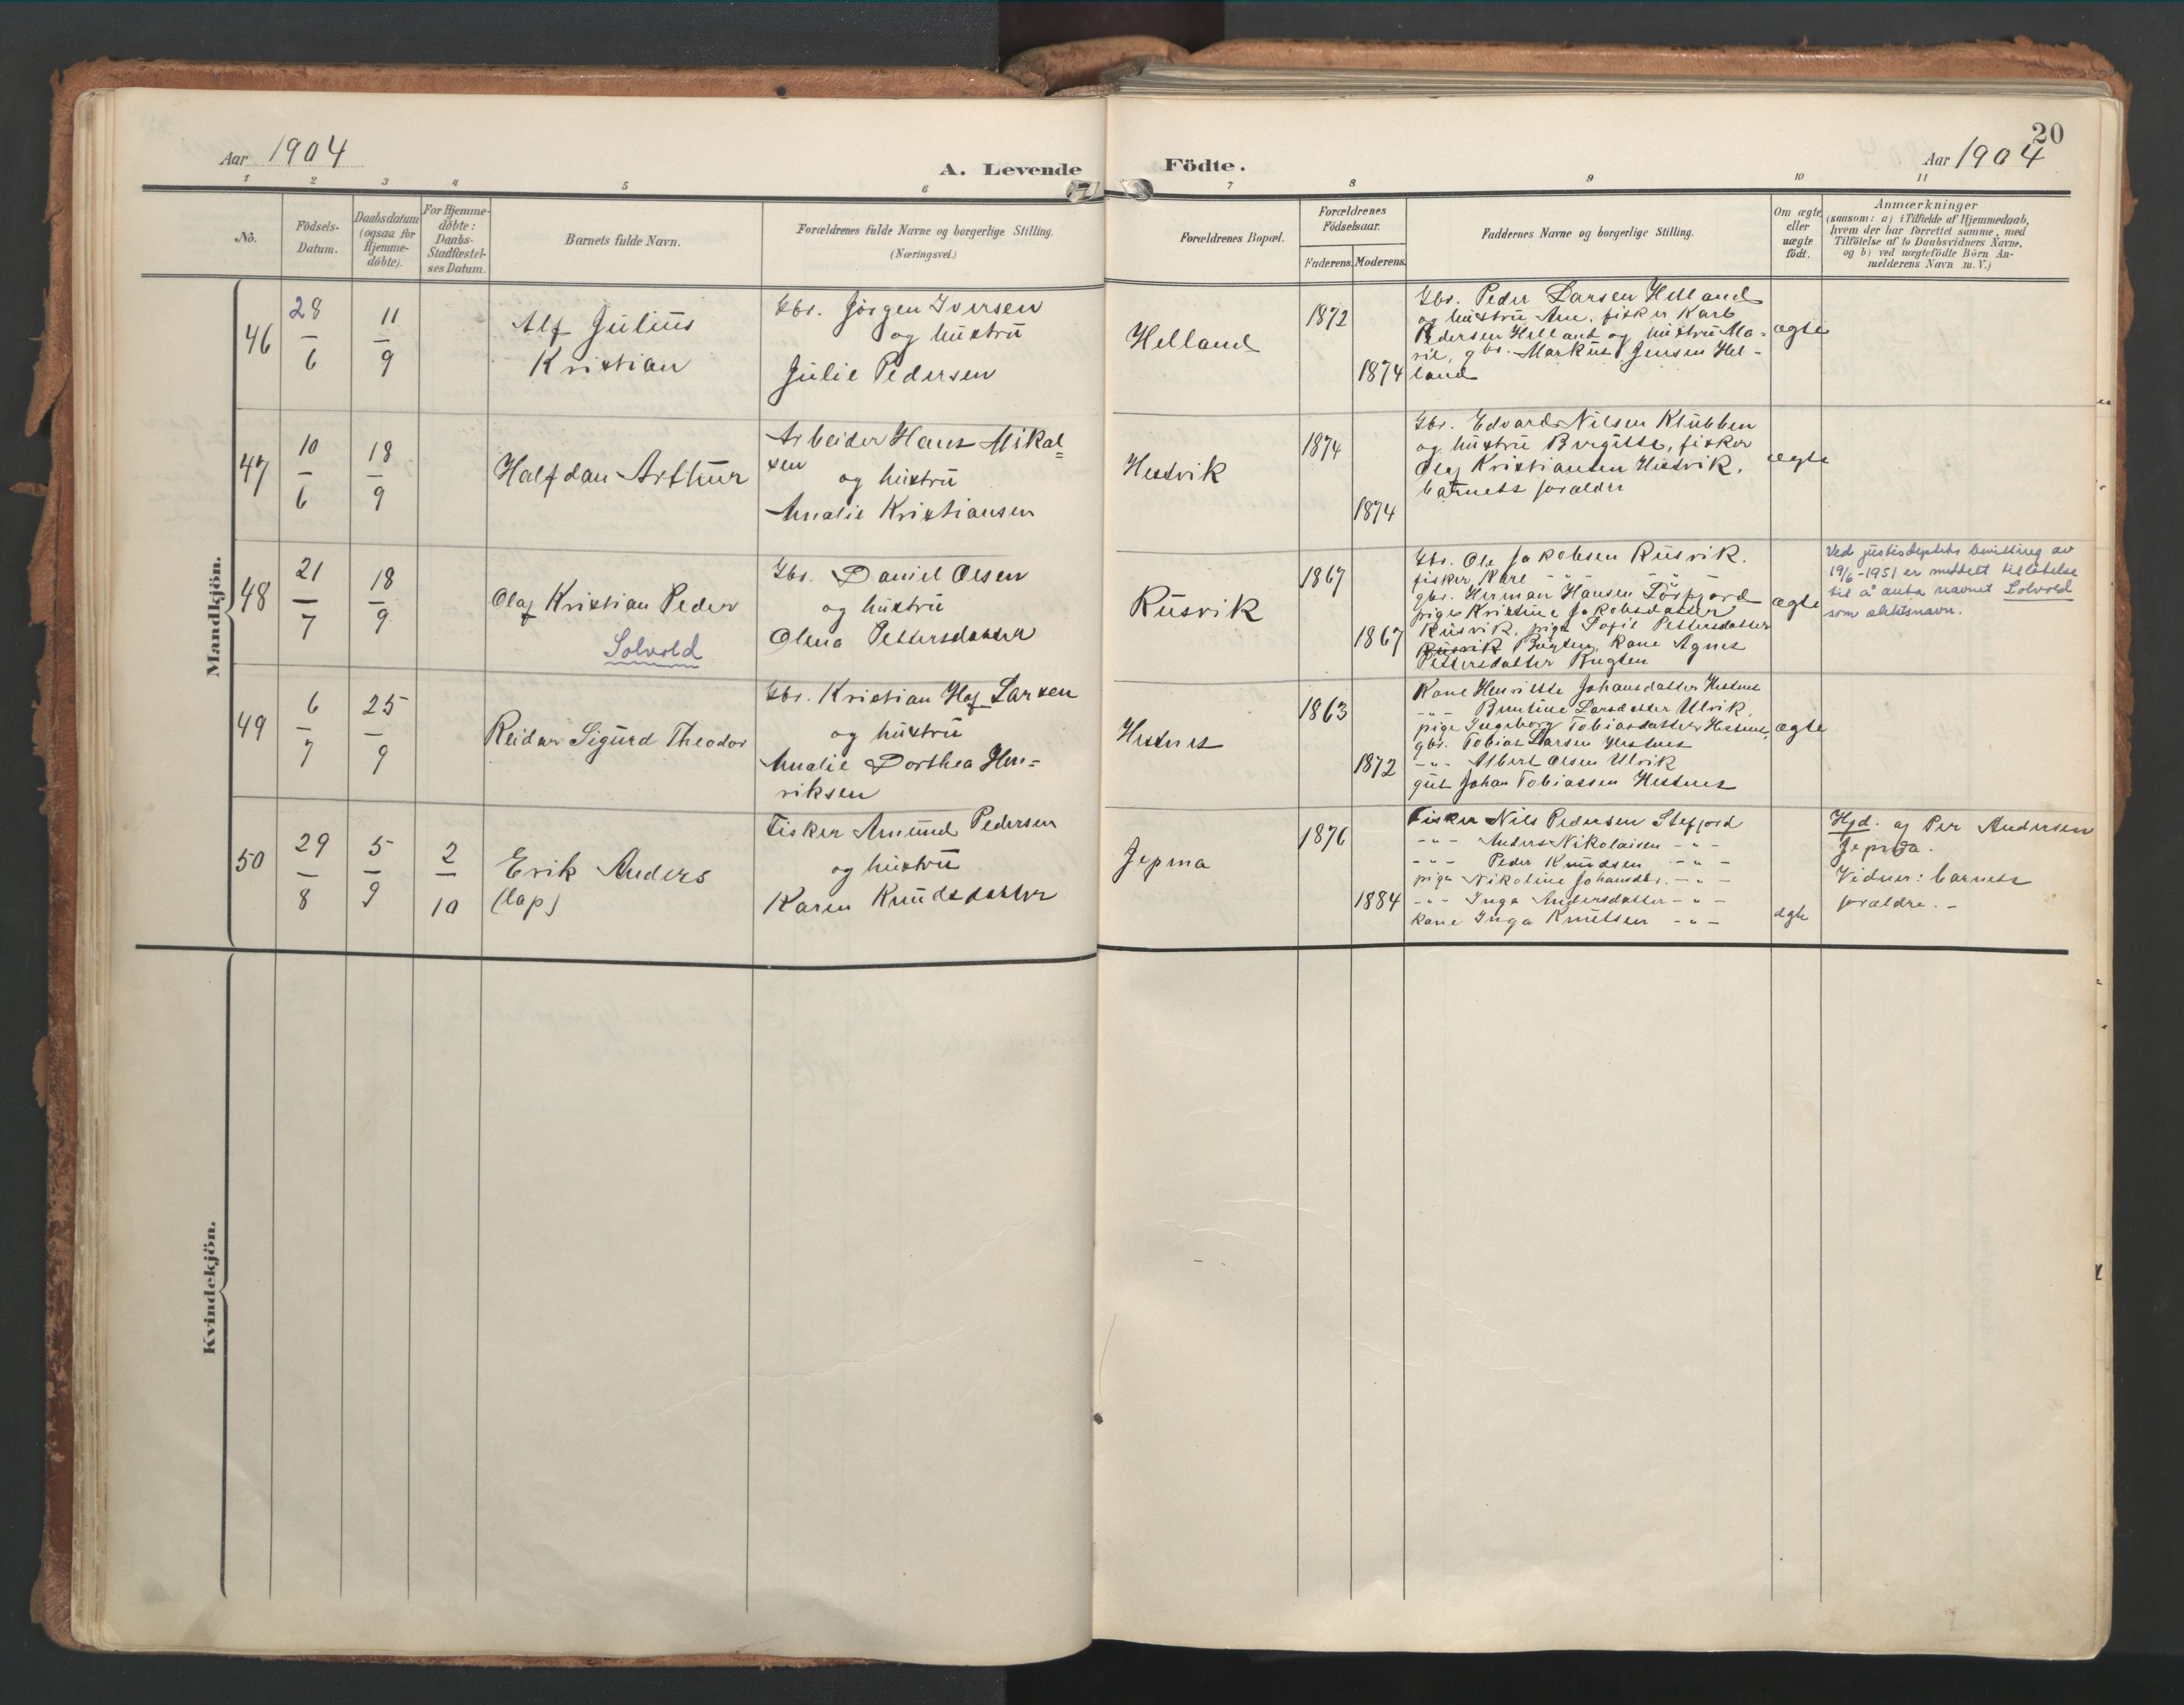 Aar 1904
A. Levende
Födte.
20
Aar 1904
1 2 3 4 5 6 7 8 9 10 11
No.
Födsels-
Datum.
Daabsdatum
(ogsaa for
Hjemme-
döbte).
For Hjemme-
döbte:
Daabs-
Stadfæstel-
ses Datum.
Barnets fulde Navn.
Forældrenes fulde Navne og borgerlige Stilling.
(Næringsvei.)
Forældrenes Bopæl.
Forældrenes
Födselsaar.
Faderens. Moderens.
Faddernes Navne og borgerlige Stilling.
Om ægte
eller
uægte
födt.
Anmærkninger
(saasom: a) i Tilfælde af Hjemmedaab,
hvem der har forrettet samme, med
Tilföielse af to Daabsvidners Navne,
og b) ved uægtefödte Börn An-
melderens Navn m. V.)
Mandkjön.
46
28
6
11
9
Alf Julius
Kristian
Gbr. Jörgen Iversen
og hustru
Julie Pedersen
Helland
1872
1874
Gbr. Peder Larsen Helland
og hustru Ane, fisker Karl
Pedersen Helland og hustru Ma-
rie, gbr. Markus Jensen Hel-
land
ægte
47
10
6
18
9
Halfdan Arthur
Arbeider Hans Mikal=
sen
og hustru
Amalie Kristiansen
Hestvik
1874
1874
Gbr. Edvard Nilsen Klubben
og hustru Bergitte, fisker
Olaf Kristiansen Hestvik,
barnets forældre
ægte
48
21
7
18
9
Olaf Kristian Peder
Solvold
Gbr. Daniel Olsen
og hustru
Olena Pettersdatter
Rusvik
1867
1867
Gbr. Ole Jakobsen Rusvik.
fisker Kare - " -
gbr. Herman Hansen Törfjord
pige Kristine Jakobsdatter
Rusvik, pige Sofie Pettersdatter
Rusvik Bugten, kone Agnes
Pettersdatter Bugten
ægte
Ved justisdeptets bevilling av
19/6-1951 er meddelt tillatelse
til å anta navnet Solvold
som slektsnavn.
49
6
7
25
9
Reidar Sigurd Theodor
Gbr. Kristian Hof Larsen
og hustru
Amalie Dorthea Hen=
riksen
Hestnes
1863
1872
Kone Henriette Johansdatter Hestnes
- " - Berntine Larsdatter Ulvik,
pige Ingeborg Tobiasdatter Hestnes,
gbr. Tobias Larsen Hestnes
- " - Albert Olsen Ulvik
gut Johan Tobiassen Hestnes
ægte
50
29
8
5
9
2
10
Erik Anders
(lap)
Fisker Amund Pedersen
og hustru
Karen Knudsdatter
Jepma
1876
1884
Fisker Nils Pedersen Stefjord
- " - Anders Nikolaisen - " -
- " - Peder Knudsen - " -
pige Nikoline Johansdtr. - " -
- " - Inga Andersdatter - " -
kone Inga Knutsen - " -
ægte
Hjd. af Per Andersen
Jepma.
Vidner: barnets
forældre. -
Kvindekjön.